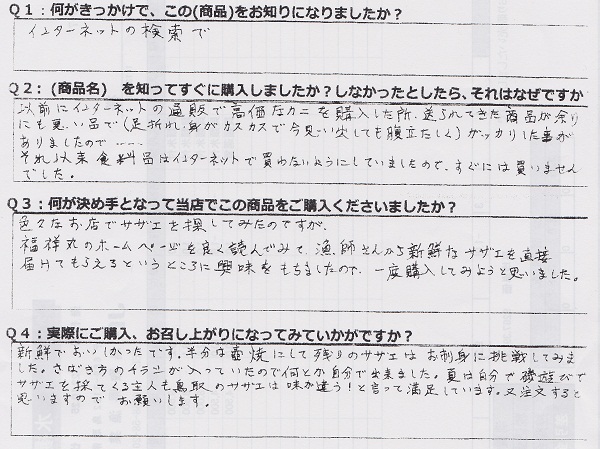 Q1：何がきっかけで、この(商品)をお知りになりましたか？
インターネットの検索で
Q2：(商品名)　を知ってすぐに購入しましたか？しなかったとしたら、それはなぜですか
以前にインターネットの通販で高価なカニを購入した所、送られてきた商品が余り
にも悪い品で(足折れ、身がカスカスで今思い出しても腹立たしく)ガッカリした事が
ありましたので……
それ以来食料品はインターネットで買わないようにしていましたので、すぐには買いません
でした。
Q3：何が決め手となって当店でこの商品をご購入くださいましたか？
色々なお店でサザエを探してみたのですが、
福祥丸のホームページを良く読んでみて、漁師さんから新鮮なサザエを直接
届けてもらえるというところに興味をもちましたので、一度購入してみようと思いました。
Q4：実際にご購入、お召し上がりになってみていかがですか？
新鮮でおいしかったです。半分は壺焼にして残りのサザエはお刺身に挑戦してみま
した。さばき方のチラシが入っていたので何とか自分で出来ました。夏は自分で磯遊びで
サザエを採ってくる主人も鳥取のサザエは味が違う！と言って満足しています。又注文すると
思いますので　お願いします。